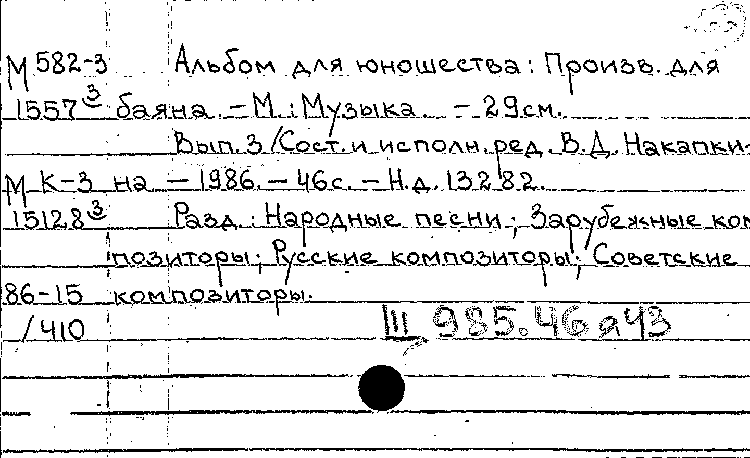 М 582-3 Альбом для юношества: Произв. для
1557 3 баяна. – М.: Музыка. – 29см.
Вып. 3 / Сост. и исполн. ред. В.Д. Накапки-
М К-3 на – 1986. – 46с. – Н.д. 13282.
15128 3 Разд.: Народные песни; Зарубежные ком
позиторы; Русские композиторы; Советские
86-15 композиторы.
/410 III 985.46я43